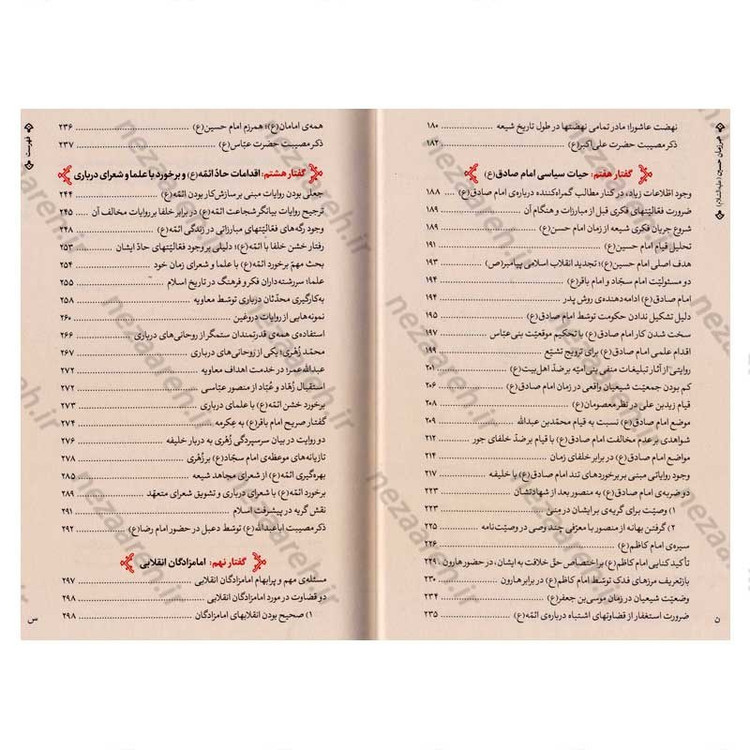 همرزمان حسین (علیه‌السّلام)
نهضت عاشورا؛ مادر تمامی نهضتها در طول تاریخ شیعه ۱۸۰
ذکر مصیبت حضرت علی‌اکبر(ع) ۱۸۲
گفتار هفتم: حیات سیاسی امام صادق(ع)
وجود اطلاعات زیاد، در کنار مطالب گمراه‌کننده درباره‌ی امام صادق(ع) ۱۸۸
ضرورت فعّالیّتهای فکری قبل از مبارزات و هنگام آن ۱۸۹
شروع جریان فکری شیعه از زمان امام حسن(ع) ۱۸۹
تحلیل قیام امام حسین(ع) ۱۹۱
هدف اصلی امام حسین(ع)؛ تجدید انقلاب اسلامی پیامبر(ص) ۱۹۳
دو مسئولیّت امام سجّاد و امام باقر(ع) ۱۹۴
امام صادق(ع) ادامه‌دهنده‌ی روش پدر ۱۹۴
دلیل تشکیل ندادن حکومت توسّط امام صادق(ع) ۱۹۵
سخت شدن کار امام صادق(ع) با تحکیم موقعیّت بنی‌عبّاس ۱۹۷
اقدام علمی امام صادق(ع) برای ترویج تشیّع ۱۹۹
روایتی از آثار تبلیغات منفی بنی‌امیّه بر ضدّ اهل‌بیت(ع) ۲۰۱
کم بودن جمعیّت شیعیان واقعی در زمان امام صادق(ع) ۲۰۶
قیام زیدبن علی در نظر معصومان(ع) ۲۰۸
موضع امام صادق(ع) نسبت به قیام محمّد بن عبدالله ۲۰۹
شواهدی بر عدم مخالفت امام صادق(ع) با قیام بر ضدّ خلفای جور ۲۱۲
مواضع امام صادق(ع) در برابر خلفای زمان ۲۱۴
وجود روایاتی مبنی بر برخوردهای تند امام صادق(ع) با خلیفه ۲۱۷
دو ضربه‌ی امام صادق(ع) به منصور بعد از شهادتشان ۲۲۳
۱) وصیّت برای گریه‌ی برایشان در مِنی ۲۲۳
۲) گرفتن بهانه از منصور با معرّفی چند وصی در وصیّت‌نامه ۲۲۵
سیره‌ی امام کاظم(ع) ۲۲۶
تأکید کتابی امام کاظم(ع) بر اختصاص حق خلافت به ایشان، در حضور هارون ۲۲۹
بازتعریف مرزهای فدک توسّط امام کاظم(ع) در برابر هارون ۲۳۰
وضعیّت شیعیان در زمان موسی‌بن جعفر(ع) ۲۳۴
ضرورت استغفار از قضاوتهای اشتباه درباره‌ی ائمّه(ع) ۲۳۵
ن
فهرست
همه‌ی امامان(ع)؛ همرزم امام حسین(ع) ۲۳۶
ذکر مصیبت حضرت عبّاس(ع) ۲۳۷
گفتار هشتم: اقدامات حادّ ائمّه(ع) و برخورد با علما و شعرای درباری
جعلی بودن روایات مبنی بر سازش‌کار بودن ائمّه(ع) ۲۴۴
ترجیح روایات بیانگر شجاعت ائمّه(ع) در برابر خلفا بر روایات مخالف آن ۲۴۵
وجود رگه‌های فعّالیّتهای مبارزاتی در زندگی ائمّه(ع) ۲۴۸
رفتار خشن خلفا با ائمّه(ع)؛ دلیلی بر وجود فعّالیّتهای حادّ ایشان ۲۵۳
بحث مهمّ برخورد ائمّه(ع) با علما و شعرای زمان خود ۲۵۴
علما؛ سررشته‌داران فکر و فرهنگ در تاریخ اسلام ۲۵۵
به‌کارگیری محدّثان درباری توسّط معاویه ۲۵۸
نمونه‌هایی از روایات دروغین ۲۶۰
استفاده‌ی همه‌ی قدرتمندان ستمگر از روحانی‌های درباری ۲۶۶
محمّد زُهْری؛ یکی از روحانی‌های درباری ۲۶۷
عبدالله‌عمر؛ در خدمت اهداف معاویه ۲۷۲
استقبال زُهّاد و عُبّاد از منصور عبّاسی ۲۷۲
برخورد خشن ائمّه(ع) با علمای درباری ۲۷۳
گفتار صریح امام باقر(ع) به عِکرمه ۲۷۴
دو روایت در بیان سرسپردگی زُهْری به دربار خلیفه ۲۷۶
تازیانه‌های موعظه‌ی امام سجّاد(ع) بر زُهْری ۲۷۸
بهره‌گیری ائمّه(ع) از شعرای مجاهد شیعه ۲۸۵
برخورد ائمّه(ع) با شعرای درباری و تشویق شعرای متعهّد ۲۸۹
نقش گریه در پیشرفت اسلام ۲۹۱
ذکر مصیبت اباعبدالله(ع) توسّط دعبل در حضور امام رضا(ع) ۲۹۲
گفتار نهم: امامزادگان انقلابی
مسئله‌ی مهم و پرابهام امامزادگان انقلابی ۲۹۷
دو قضاوت در مورد امامزادگان انقلابی ۲۹۸
۱) صحیح بودن انقلابهای امامزادگان ۲۹۸
س
nezaareh.ir